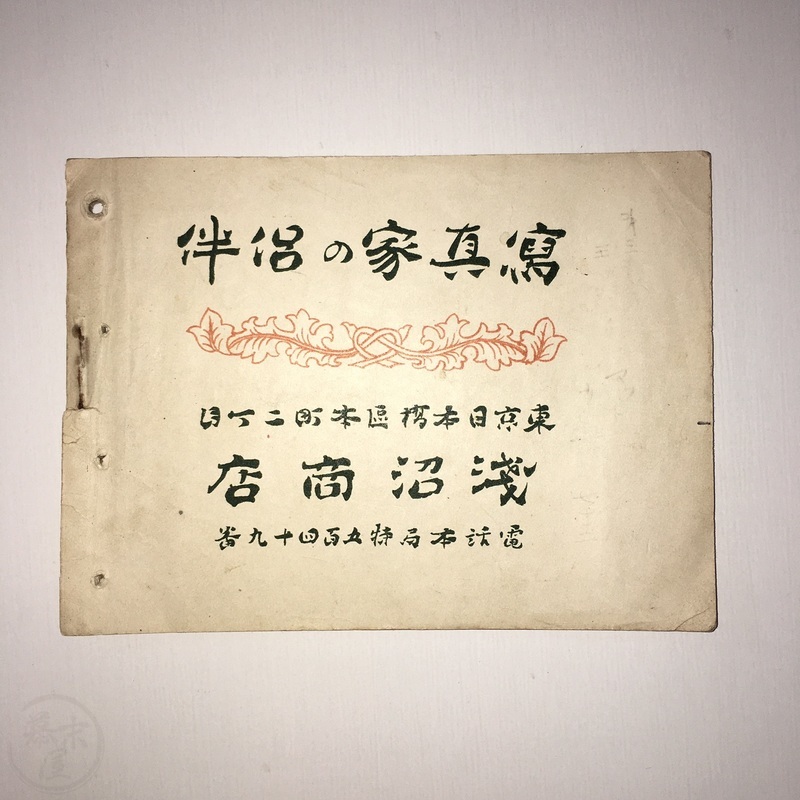 寫真家の侶伴
東京日本橋區本町二丁目
淺沼商店
電話本局特五百四十九番
幕末屋